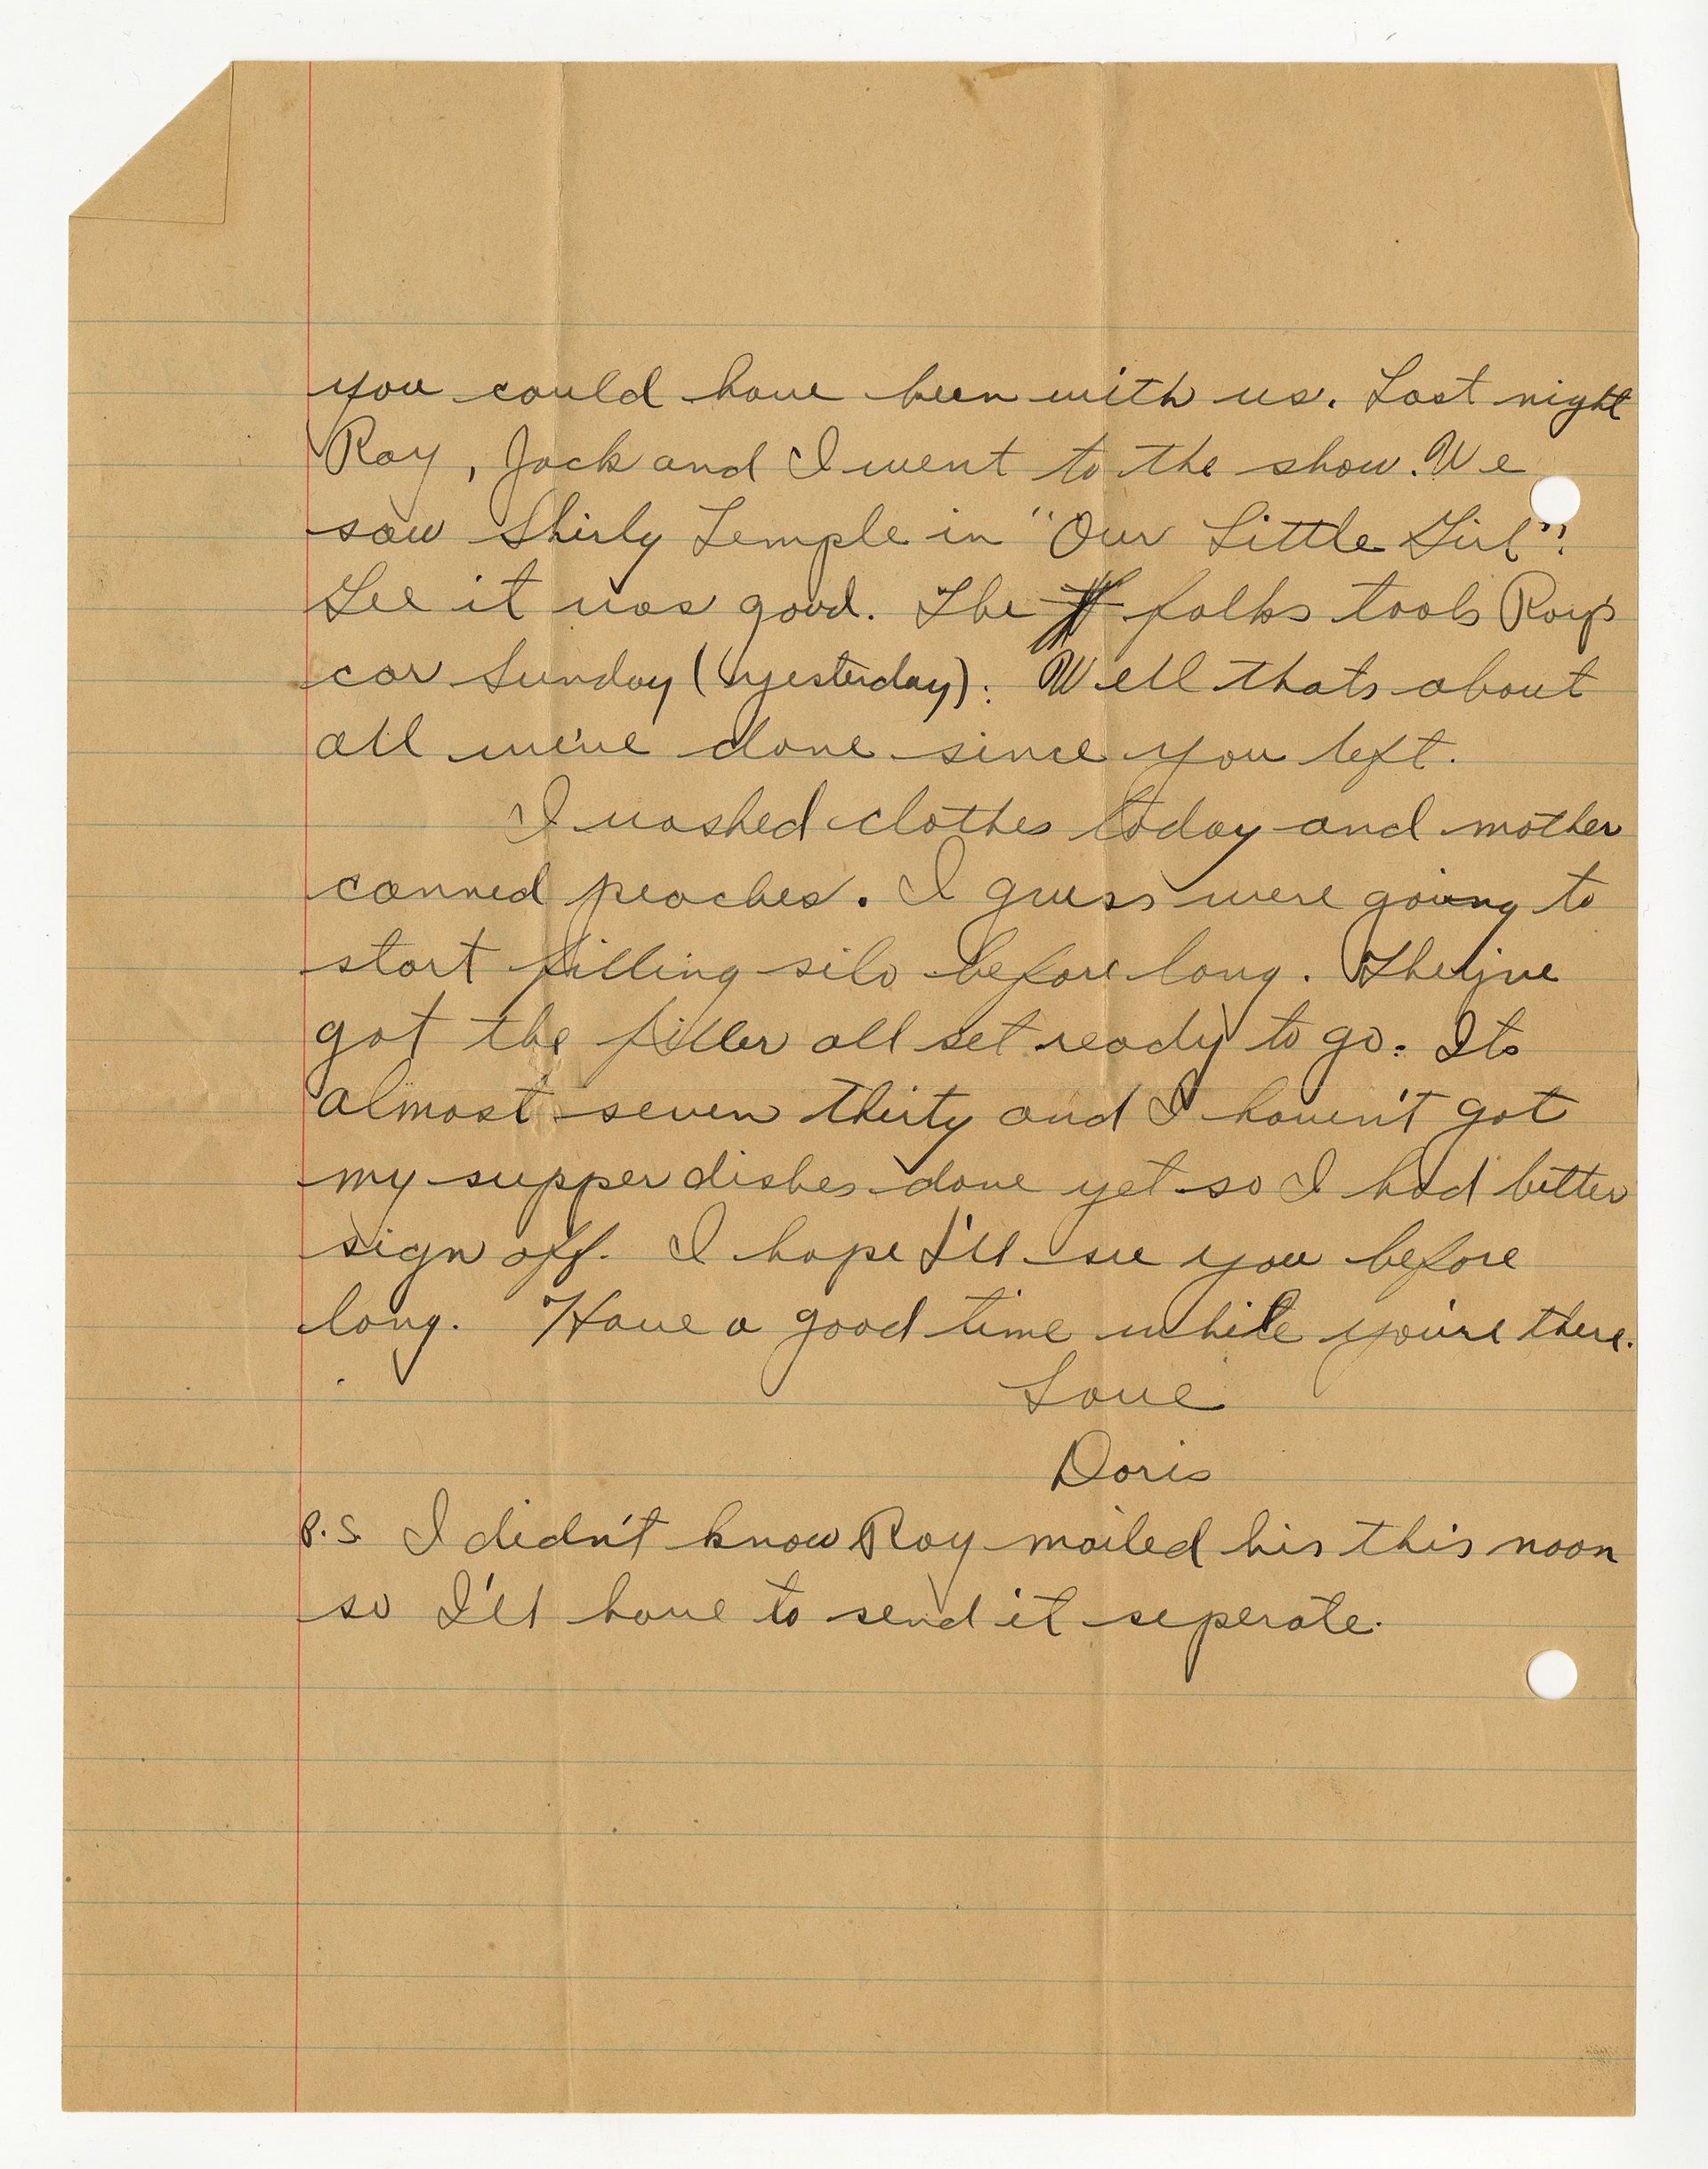 you could have been with us. Last night
Ray, Jack and I went to the show. We
saw Shirly Temple in "Our Little Girl"!
Gee it was good. The folks took Ray's
car Sunday (yesterday). Well thats about
all we've done since you left.
I washed clothes today and mother
canned peaches. I guess were going to
start filling silo before long. They've
got the filler all set ready to go. Its
almost seven thirty and I haven't got
my supper dishes done yet so I had better
sign off. I hope I'll see you before
long. Have a good time while you're there.
Love
Doris
P.S. I didn't know Ray mailed his this noon
so I'll have to send it seperate.